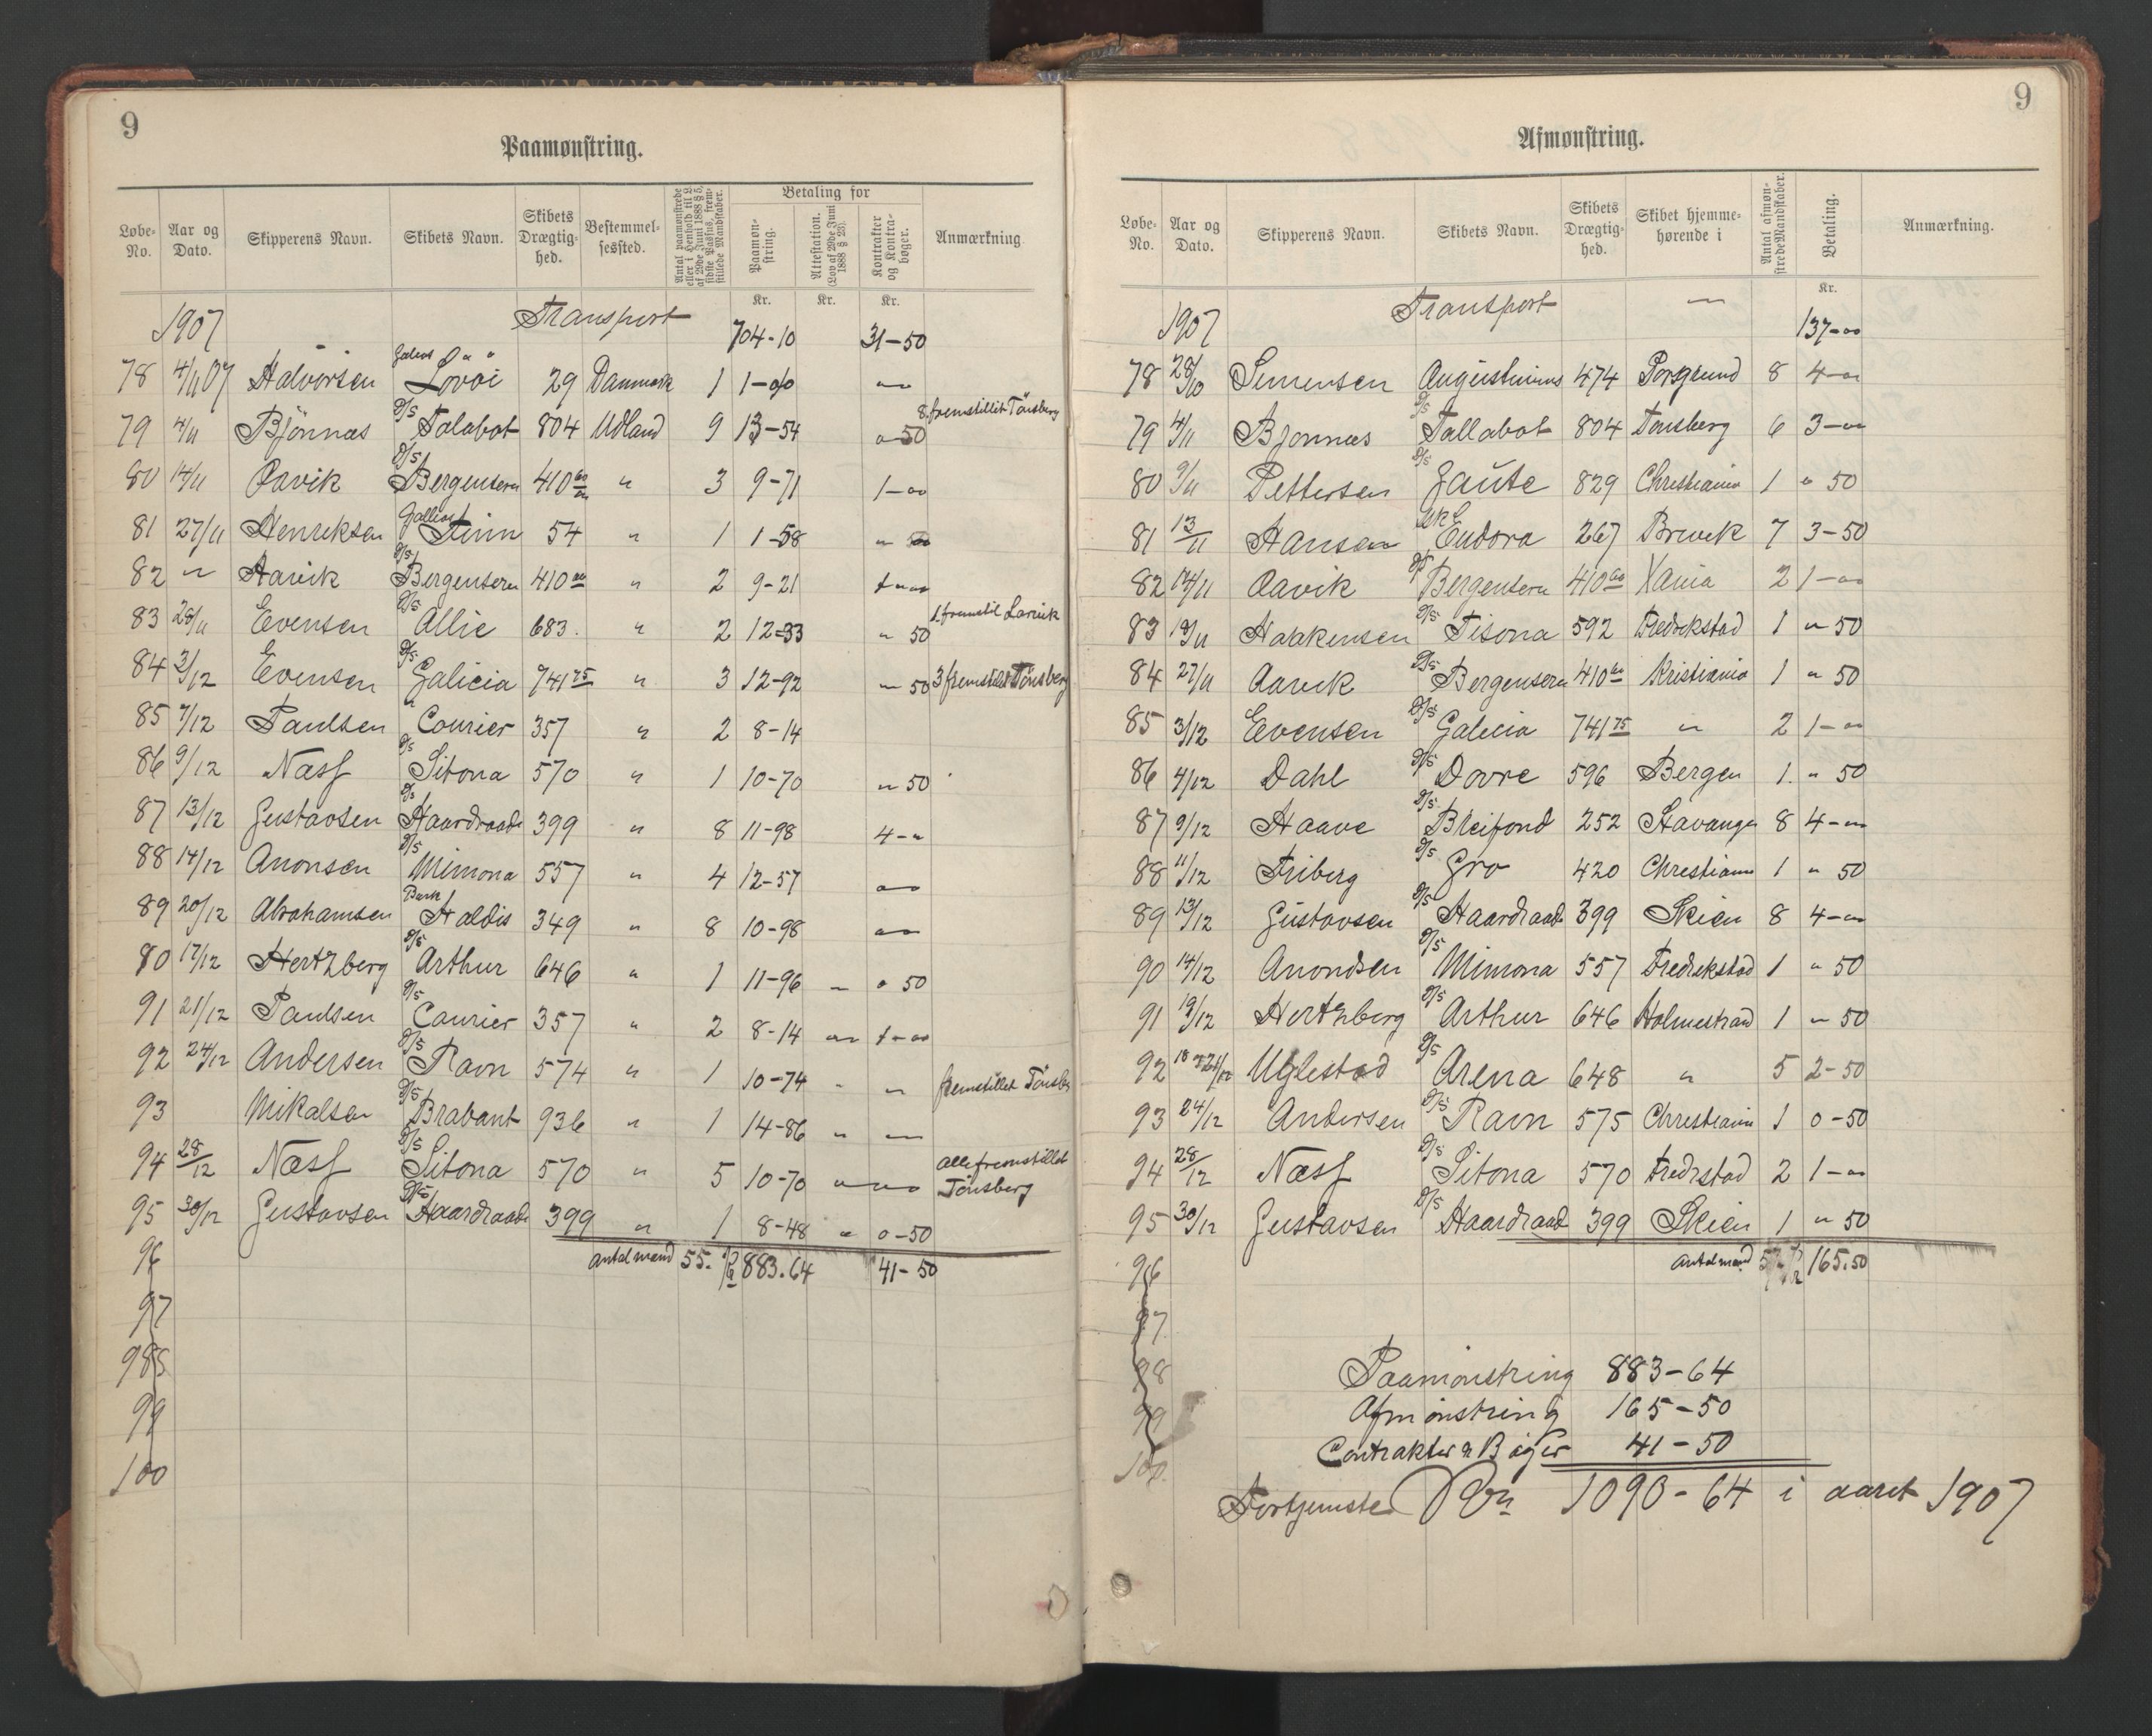 9
Paamønstring.
Løbe-No. Aar og Dato. Skipperens Navn. Skibets Navn. Skibets Drægtighed. Bestemmelsessted. Antal paamønstrede eller i Henhold til L. af 29de Juni 1888 § 5, sidste Passus, fremstillede Mandskaber. Betaling for Paamønstring. Attestation. (Lov af 29de Juni 1888 § 23). Kontrakter og Kontrabøger. Anmærkning
Kr. Kr. Kr.
1907 Transport 704-10 31-50
78 4/11 07 Halvorsen Lövöi 29 Danmark 1 1-00 "
79 4/11 Bjönnas D/S Talabot 804 Udland 9 13-54 0 50 8 fremstillet Tönsberg
80 14/11 Aavik D/S Bergenseren 410 60 " 3 9-71 1-00
81 27/11 Henriksen Finn 54 " 1 1-58 "
82 " Aavik D/S Bergenseren 410 60 " 2 9-21 1-00
83 28/11 Evensen D/S Allie 683. " 2 12-33 " 50 1 fremstil Larvik
84 3/12 Evensen D/S Galicia 741 75 " 3 12-92 " 50 3 fremstillet Tönsberg
85 7/12 Paulsen " Courier 357 " 2 8-14
86 9/12 Næss D/S Sitona 570 " 1 10-70 " 50
87 13/12 Gustavsen D/S Haardraade 399 " 8 11-98 4-"
88 14/12 Anonsen D/S Mimona 557 " 4 12-57 "
89 20/12 Abrahamsen Bark Haldis 349 " 8 10-98 "
80 17/12 Hertzberg D/S Arthur 646 " 1 11-96 " 0 50
91 21/12 Paulsen D/S Courier 357 " 2 8-14 " 1-00
92 24/12 Andersen D/S Ravn 574 " 1 10-74 " " fremstillet Tönsb
93 Mikalsen D/S Brabant 936 " 1 14-86 " "
94 28/12 Næss D/S Sitona 570 " 5 10-70 " " alle fremstillet Tönsberg
95 30/12 Gustavsen D/S Haardraade 399 " 1 8-48 " 0-50
96 antal mand 55. 883.64 41-50
97
98
99
100
9
Afmønstring.
Løbe-No. Aar og Dato. Skipperens Navn. Skibets Navn. Skibets Drægtighed. Skibet hjemmehørende i Antal afmønstrede Mandskaber. Betaling. Anmærkning.
Kr.
1907 Transport " 137-00
78 28/10 Simensen Augustinius 474 Porsgrund 8 4-00
79 4/11 Bjonnæs D/S Tallabot 804 Tonsberg 6 3-00
80 9/11 Pettersen D/S Gaute 829 Christiania 1 " 50
81 13/11 Hansen Eudora 267 Brevik 7 3-50
82 14/11 Aavik D/S Bergenseren 410 60 Xania 2 1-00
83 19/11 Haakensen D/S Tisona 592 Fredrikstad 1 " 50
84 27/11 Aavik D/S Bergenseren 410 60 Kristiania 1 " 50
85 3/12 Evensen D/S Galicia 741 75 " 2 1-00
86 4/12 Dahl D/S Dovre 596 Bergen 1. " 50
87 9/12 Haave D/S Bleifond 252 Stavanger 8 4-00
88 11/12 Friberg D/S Gro 420 Christiania 1 " 50
89 13/12 Gustavsen D/S Haardraade 399 Skien 8 4-00
90 14/12 Anondsen D/S Mimona 557 Fredrikstad 1 " 50
91 19/12 Hertzberg D/S Arthur 646 Holmestrand 1 " 50
92 18 & 21/12 Uglestad D/S Arena 648 " 5 2-50
93 24/12 Andersen D/S Ravn 575 Christiania 1 0-50
94 28/12 Næss D/S Sitona 570 Fredrstad 2 1-00
95 30/12 Gustavsen D/S Haardraade 399 Skien 1 " 50
96 antal mand 165.50
97
98 Paamönstring 883-64
99 Afmönstring 165-50
Contrakter & Böger 41-50
100
Fortjenste Kr 1090-64 i aaret 1907